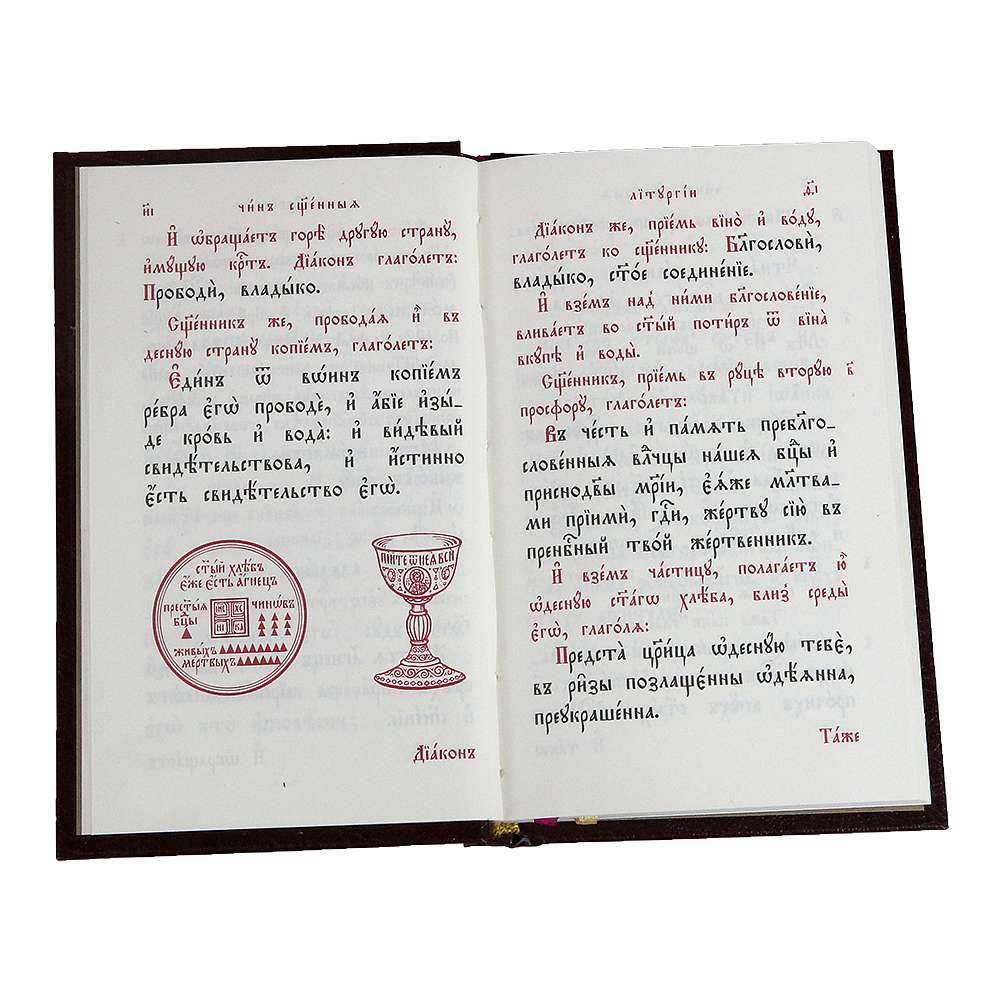 и҃і
чи́нъ сщ҃е́нныѧ
И҆ ѡ҆браща́етъ горѣ̀ дрꙋгꙋ́ю странꙋ̀,
и҆мꙋ́щꙋю крⷭ҇тъ. Дїа́конъ глаго́летъ:
Прободѝ, влады́ко.
Сщ҃е́нникъ же, пробода́ѧ и҆̀ въ
деснꙋ́ю странꙋ̀ копїе́мъ, глаго́летъ:
Є҆ди́нъ ѿ во́инъ копїе́мъ
ре́бра є҆гѡ̀ прободѐ, и҆ а҆́бїе и҆зы́-
де кро́вь и҆ вода̀: и҆ ви́дѣвый
свидѣ́тельствова, и҆ и҆́стинно
є҆́сть свидѣ́тельство є҆гѡ̀.
ст҃ы́й хлѣ́бъ
є҆́же є҆́сть а҆́гнецъ
прест҃ы́ѧ
бцⷣы
чинѡ́въ
І҆и҃с
Хрⷭ҇
НИ
КА
живы́хъ
ме́ртвыхъ
ПІЙТЕ Ѿ НЕѦ ВСИ
Дїа́конъ
лїтꙋргі́и
ѳ҃і
Дїа́конъ же, прїе́мь вїно̀ и҆ во́дꙋ,
глаго́летъ ко сщ҃е́нникꙋ: Бл҃гословѝ,
влады́ко, ст҃о́е соедине́нїе.
И҆ взе́мъ над̾ ни́ми бл҃гослове́нїе,
влива́етъ во ст҃ы́й поти́ръ ѿ вїна̀
вкꙋ́пѣ и҆ воды̀.
Сщ҃е́нникъ, прїе́мь въ рꙋ́цѣ вторꙋ́ю
в҃
просфорꙋ̀, глаго́летъ:
Въ че́сть и҆ па́мѧть пребл҃го-
слове́нныѧ влⷣчцы на́шеѧ бцⷣы и҆
приснодв҃ы мр҃і́и, є҆ѧ́же мл҃тва-
ми прїимѝ, гдⷭ҇и, же́ртвꙋ сїю̀ въ
пренбⷭ҇ный тво́й же́ртвенникъ.
И҆ взе́мъ части́цꙋ, полага́етъ ю҆̀
ѡ҆деснꙋ́ю ст҃а́гѡ хлѣ́ба, бли́з̾ среды̀
є҆гѡ̀, глаго́лѧ:
Предста̀ цр҃и́ца ѡ҆деснꙋ́ю тебѐ,
въ ри́зы позлаще́нны ѡ҆дѣ́ѧнна,
преꙋкраше́нна.
Та́же